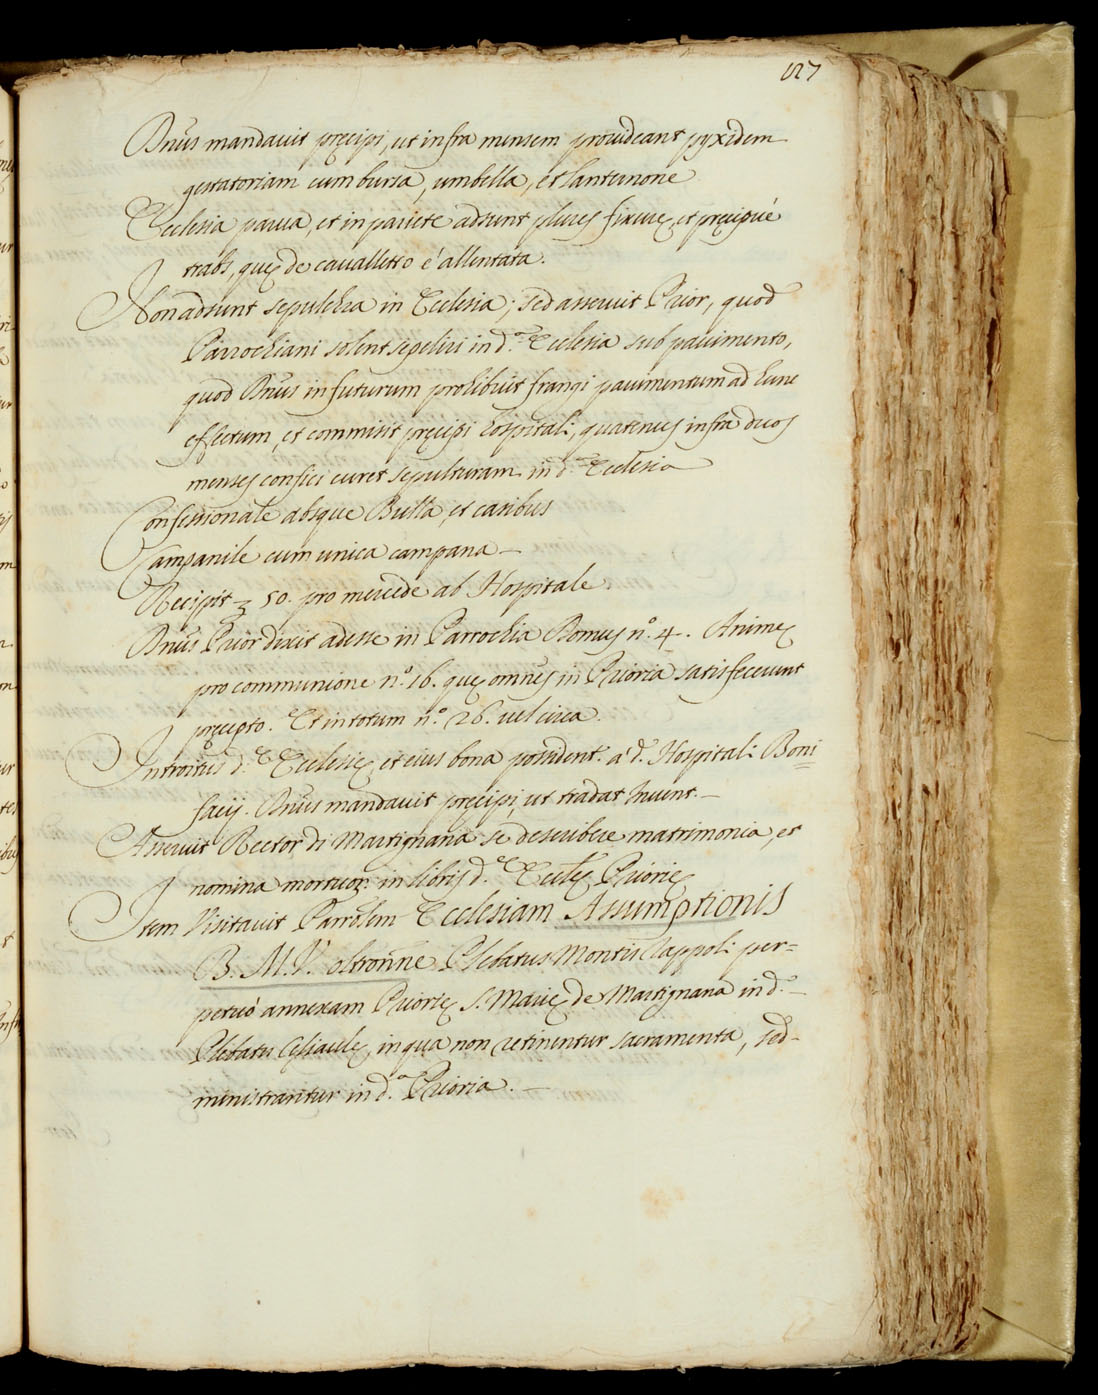 127
Dnus mandavit pręcipi, ut infra mensem provideant pyxidem
gestatoriam cum bursa, umbella, et lanternone
Ecclesia parva, et in pariete adsunt plures fixurę, et pręcipué
trabs, quę de cavalletto é allentata.
Non adsunt sepulchra in Ecclesia; sed asseruit Prior, quod
Parrochiani solent sepeliri in d.ª Ecclesia sub pavimento,
quod Dnus in futurum prohibuit frangi pavimentum ad hunc
effectum, et commisit pręcipi hospitali, quatenus infra duos
menses confici curet sepulturam in d.ª Ecclesia
Confessionale absque Bulla, et casibus
Campanile cum unica campana —
Recipit 50. pro mercede ab Hospitale.
Dnus Prior dixit adesse in Parrochia Domus nº. 4. Animę
pro communione nº. 16. quę omnes in Prioria satisfecerunt
pręcepto. Et in totum nº. 26. vel circa.
Introitus d.ę Ecclesię, et eius bona possident. á d. Hospitali Boni=
facij. Dnus mandavit pręcipi, ut tradat Invent. —
Asseruit Rector di Martignana se describere matrimonia, et
nomina mortuoꝝ in libris d.ę Eccl.ę Priorię
Item Visitavit Parrolem Ecclesiam Assumptionis
B. M. V. oltronne Plebatus Montis Lappoli per=
petuó annexam Priorię S. Marię de Martignana in d.º —
Plebatu Celiaulę, in qua non retinentur sacramenta, sed —
ministrantur in d.ª Prioria. —